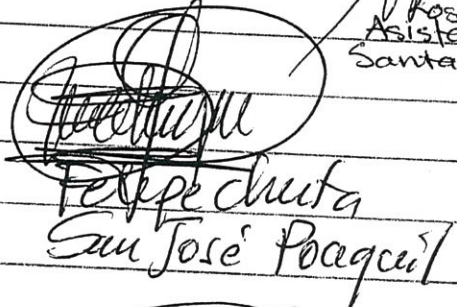 Asiste
Santa
Felipe Chuta
San José Poaquil